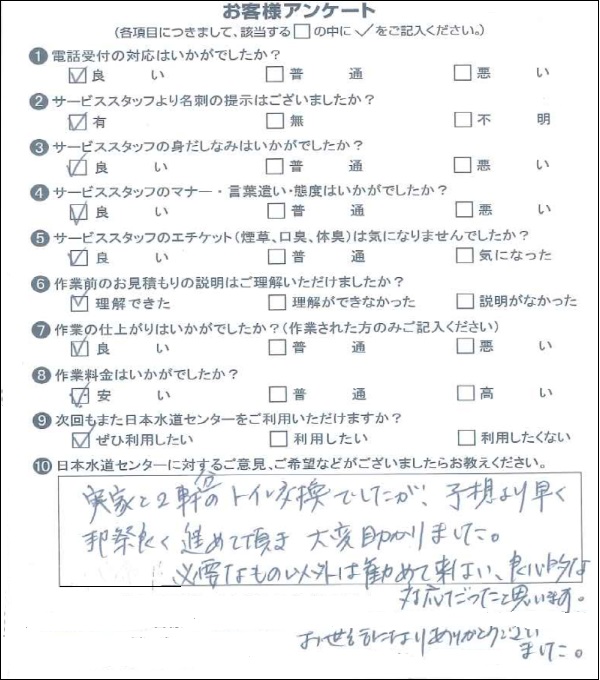 お客様アンケート
(各項目につきまして、該当する□の中に✓をご記入ください。)
1 電話受付の対応はいかがでしたか？
☑良い □普通 □悪い
2 サービススタッフより名刺の提示はございましたか？
☑有 □無 □不明
3 サービススタッフの身だしなみはいかがでしたか？
☑良い □普通 □悪い
4 サービススタッフのマナー・言葉遣い・態度はいかがでしたか？
☑良い □普通 □悪い
5 サービススタッフのエチケット(煙草、口臭、体臭)は気になりませんでしたか？
☑良い □普通 □気になった
6 作業前のお見積もりの説明はご理解いただけましたか？
☑理解できた □理解ができなかった □説明がなかった
7 作業の仕上がりはいかがでしたか？(作業された方のみご記入ください)
☑良い □普通 □悪い
8 作業料金はいかがでしたか？
☑安い □普通 □高い
9 次回もまた日本水道センターをご利用いただけますか？
☑ぜひ利用したい □利用したい □利用したくない
10 日本水道センターに対するご意見、ご希望などがございましたらお教えください。
実家と2軒分のトイレ交換でしたが、予想より早く
手際良く進めて頂き 大変助かりました。
必要なもの以外は勧めて来ない、良心的な
対応だったと思います。
お世話になりありがとうござい
ました。